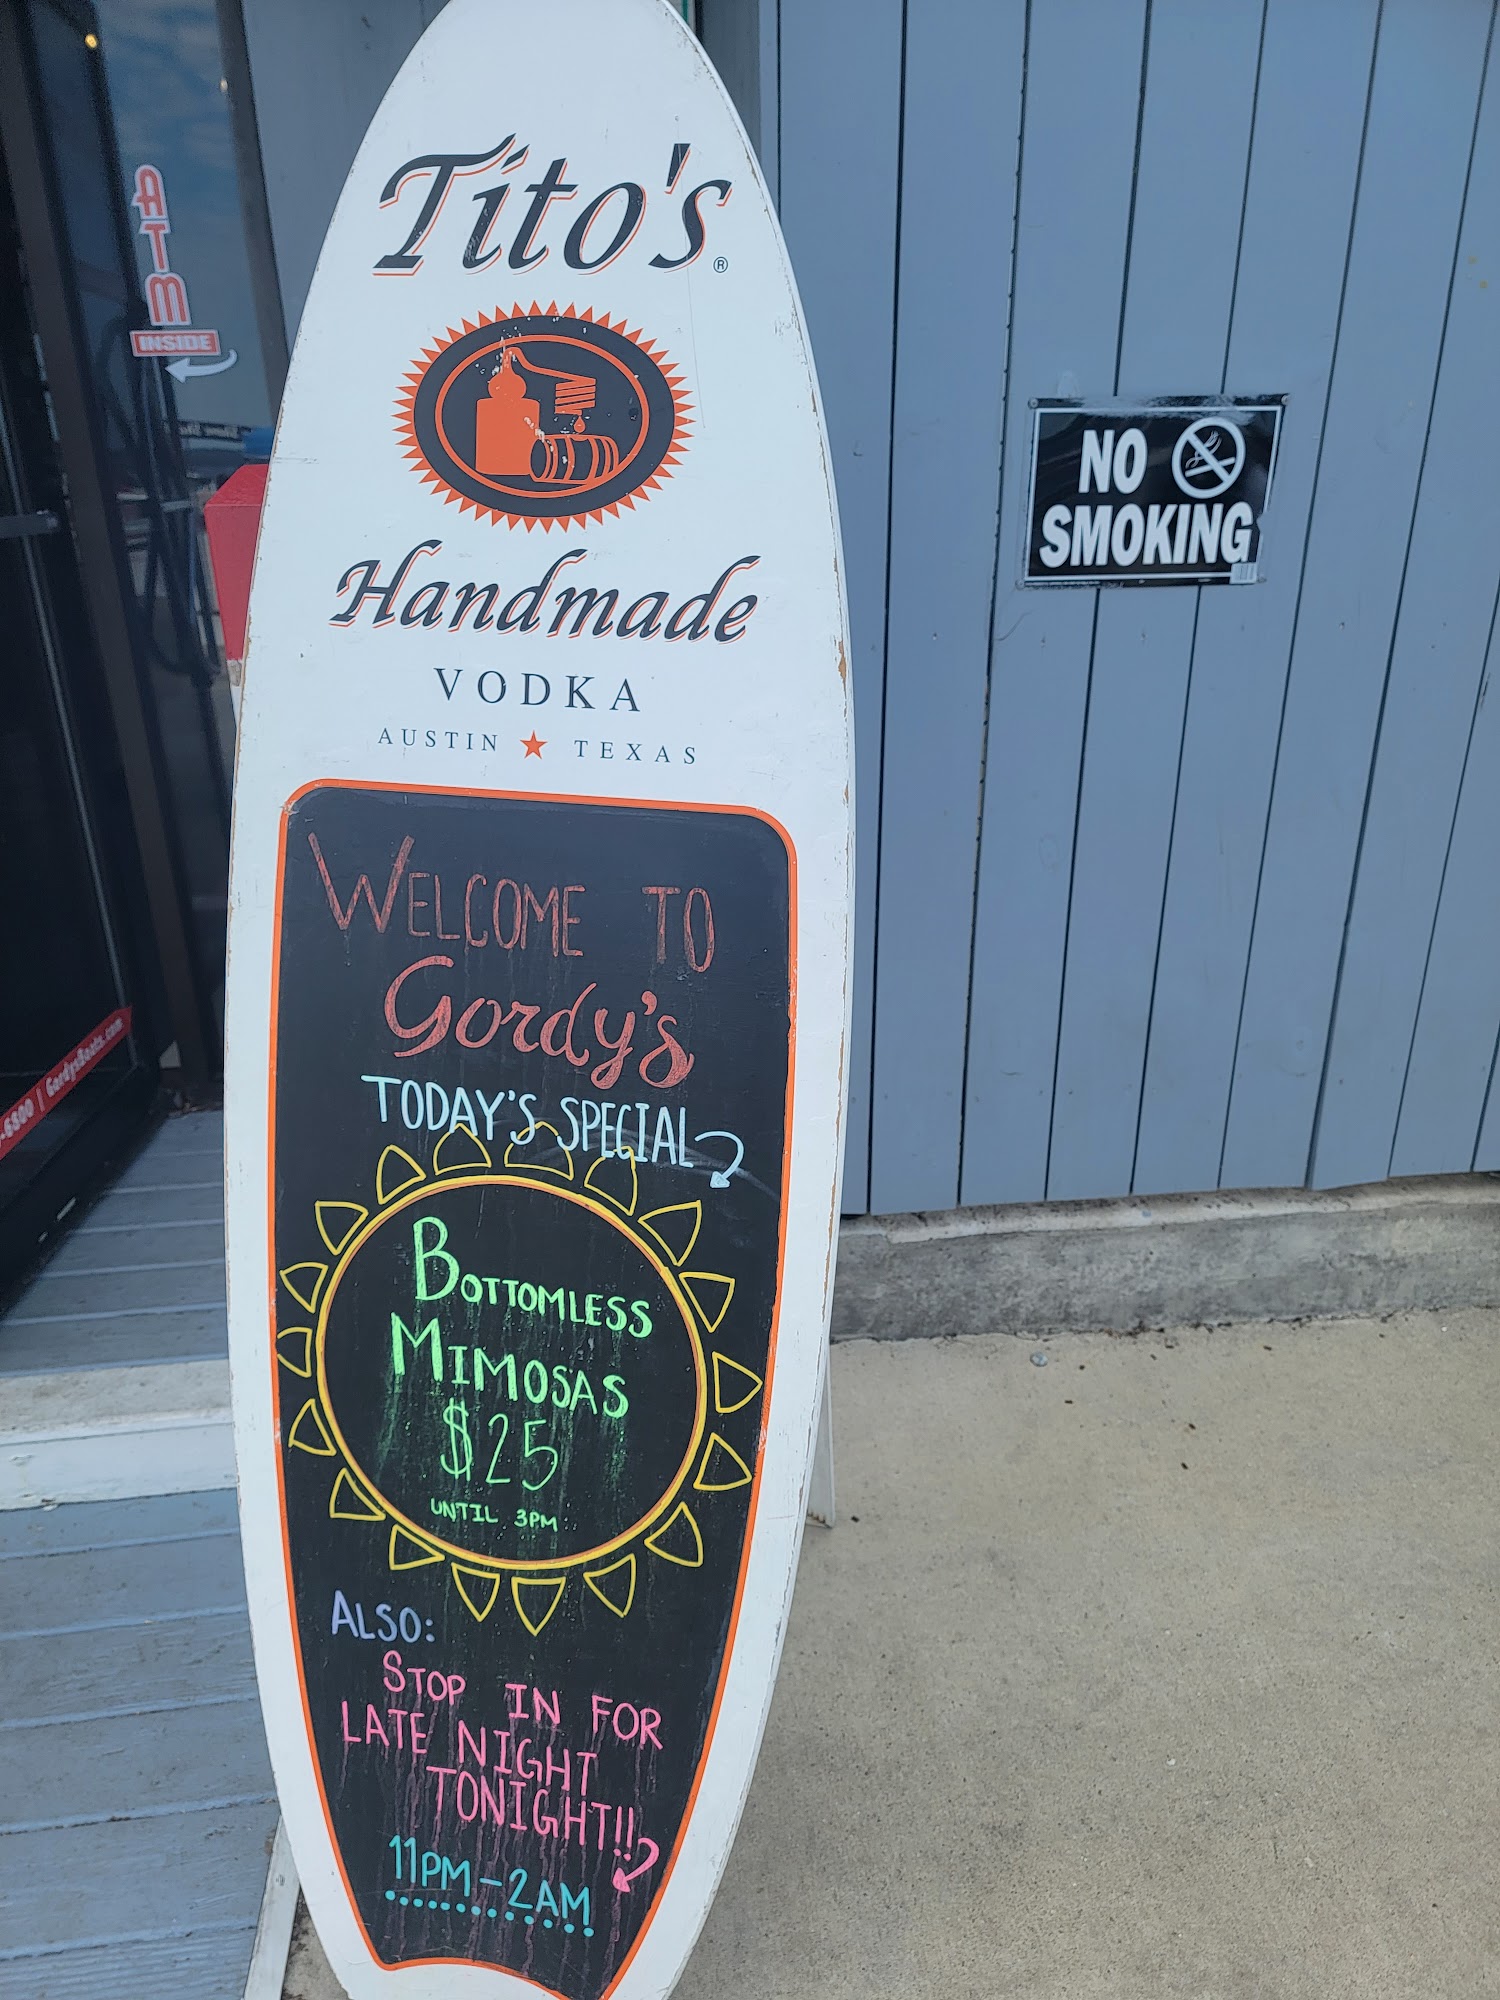 Tito's®
Handmade
VODKA
AUSTIN ★ TEXAS
WELCOME TO
Gordy's
TODAY'S SPECIAL
BOTTOMLESS
MIMOSAS
$25
UNTIL 3PM
ALSO:
STOP IN FOR
LATE NIGHT
TONIGHT!!
11PM-2AM
ATM
INSIDE
-6800 | GordysBoats.com
NO
SMOKING